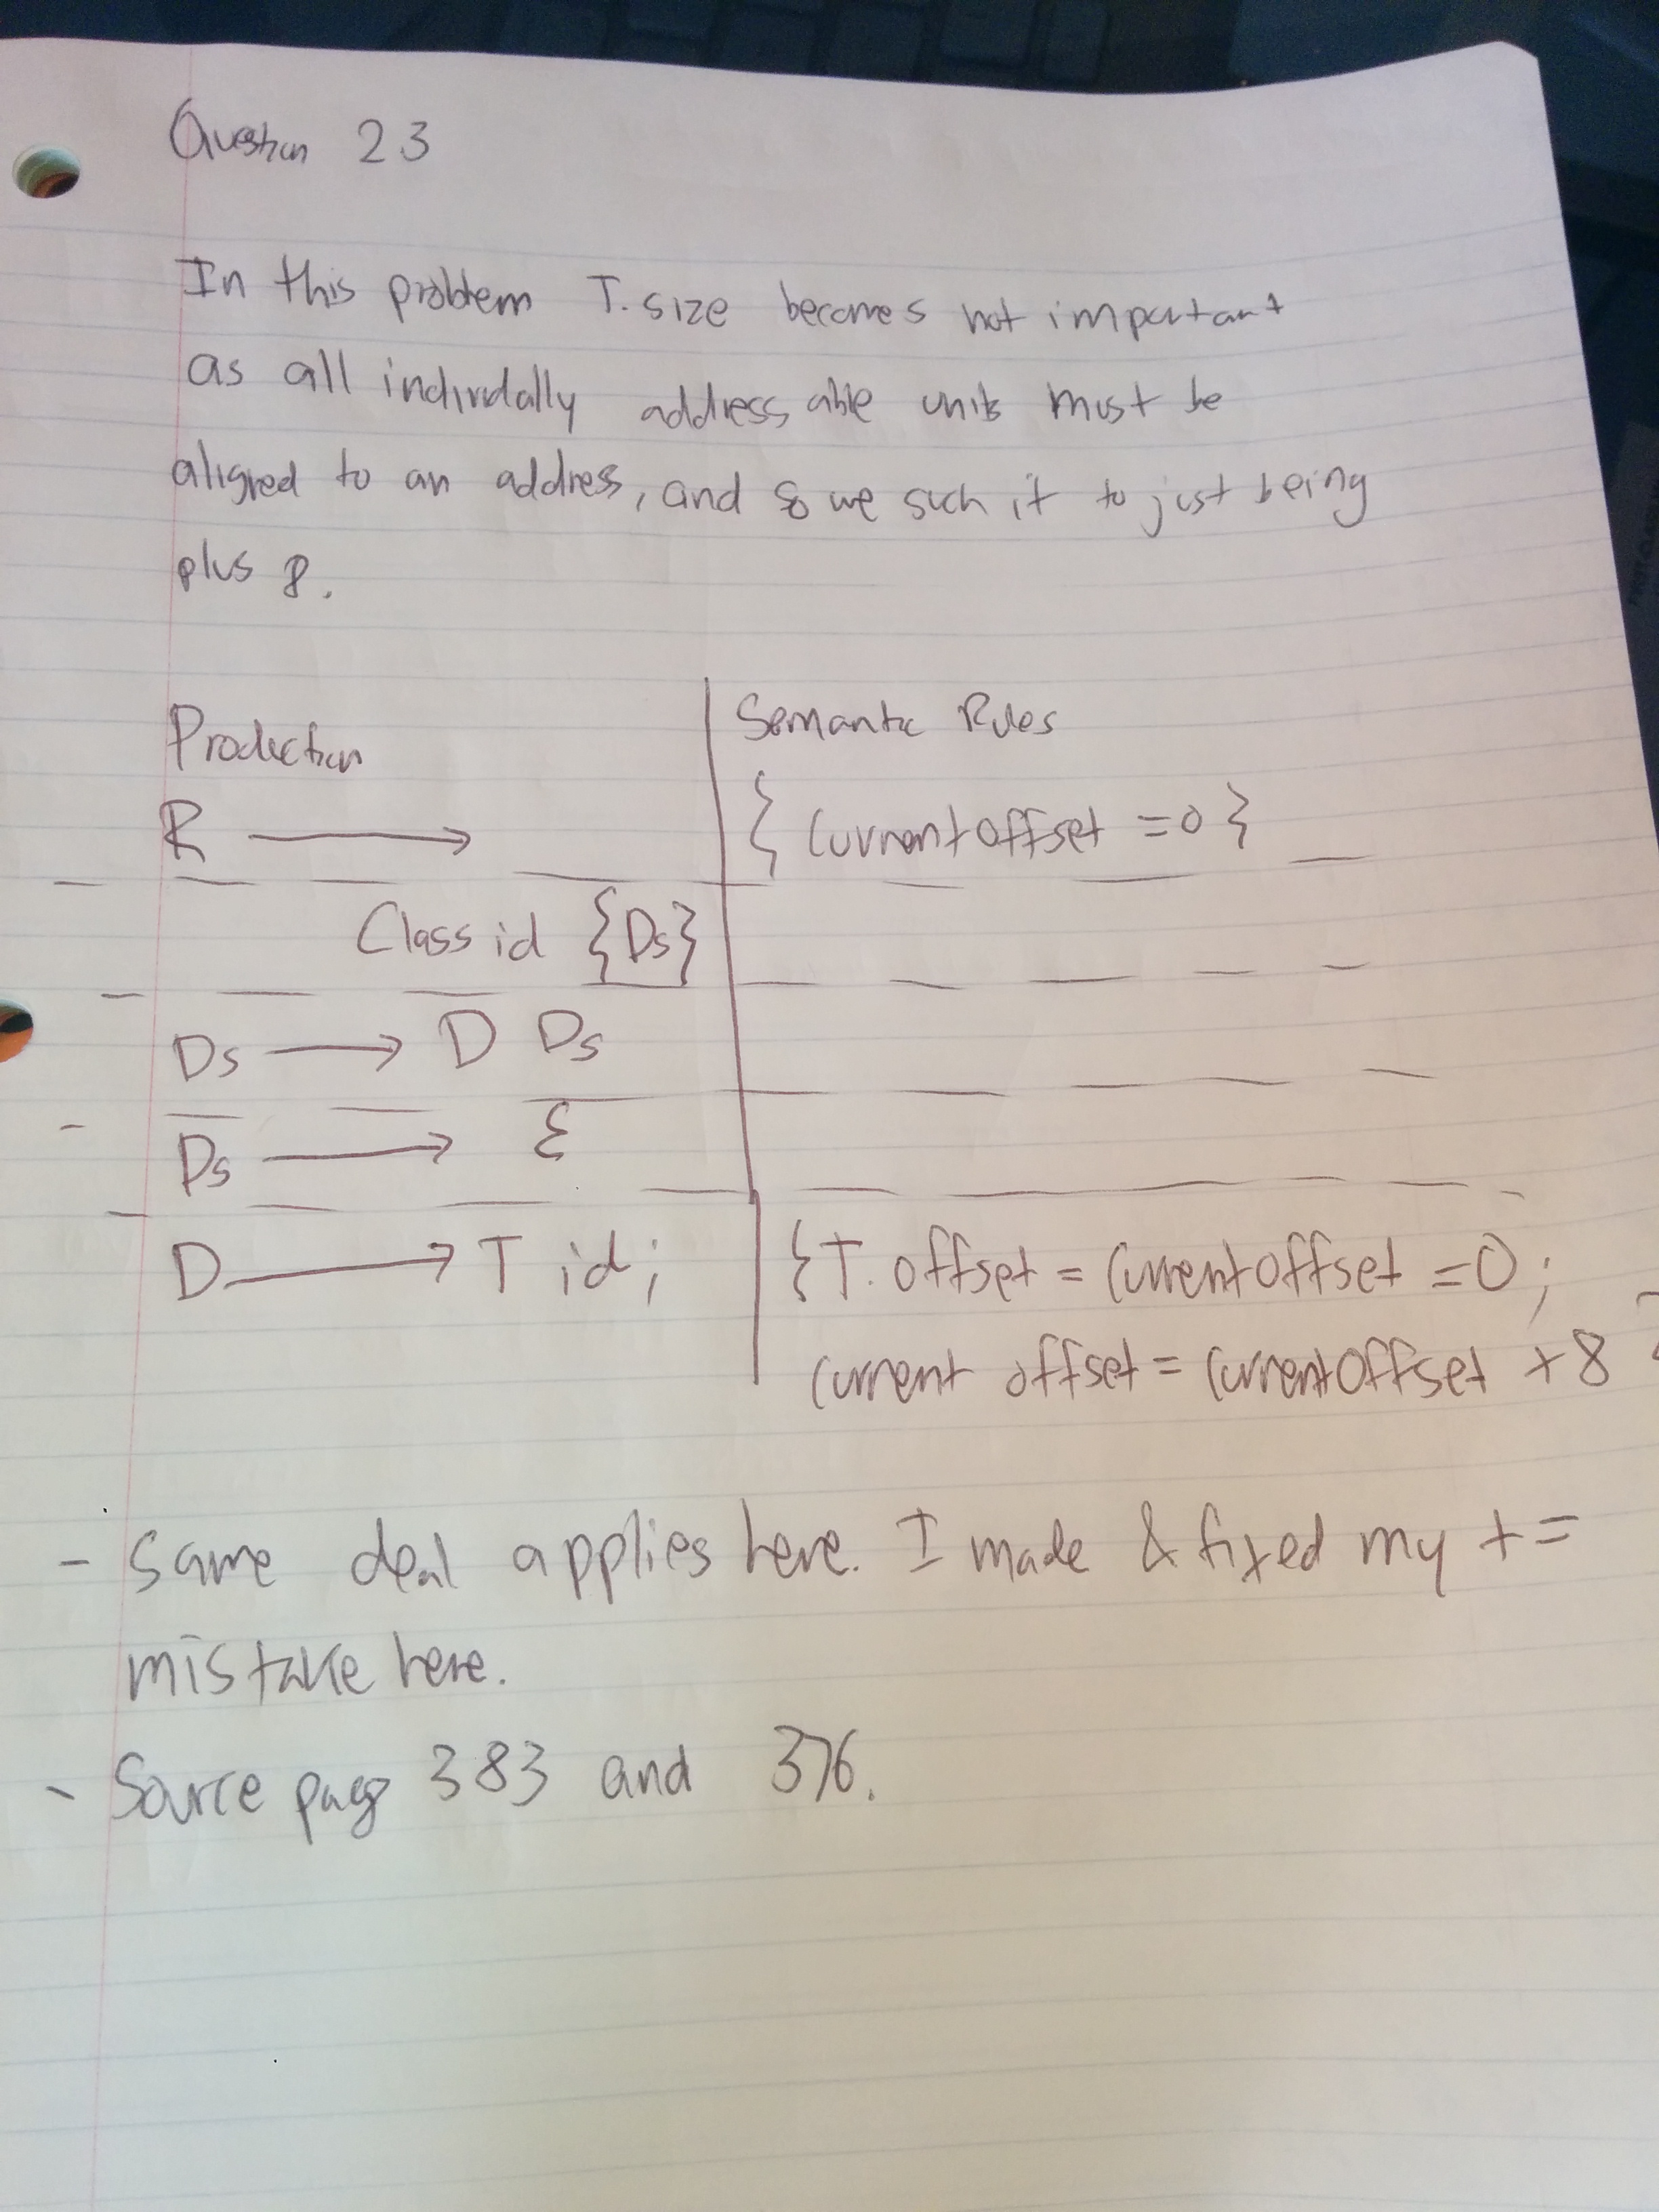 Question 23
In this problem T.size becomes not important
as all indivdally addressable units must be
aligned to an address, and so we such it to just being
plus 8.
Production Semantic Rules
R → { Current offset = 0 }
Class id {Ds}
Ds → D Ds
Ds → ε
D → T id; {T.offset = Current offset = 0;
current offset = Current Offset + 8 }
- Same deal applies here. I made & fixed my +=
mistake here.
- Source page 383 and 376.